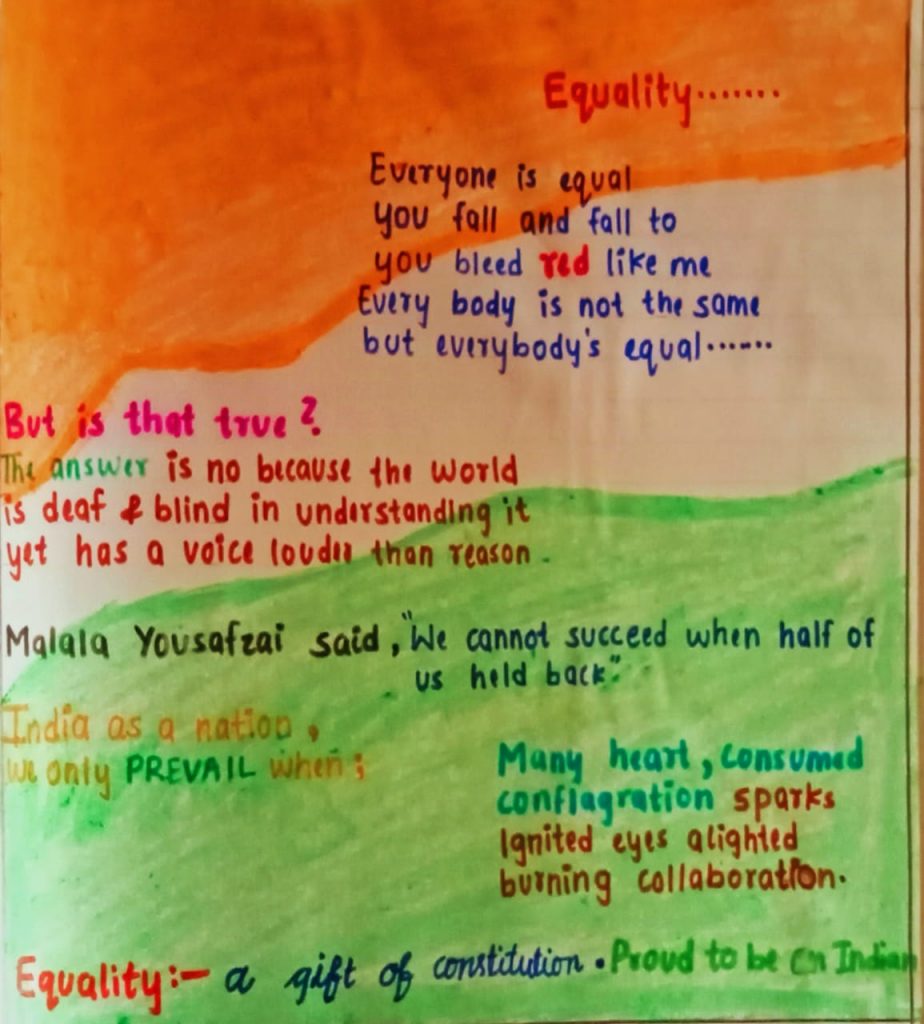 Equality.......
Everyone is equal
you fall and fall to
you bleed red like me
Every body is not the same
but everybody's equal......
But is that true?
The answer is no because the world
is deaf & blind in understanding it
yet has a voice louder than reason.
Malala Yousafzai said, "We cannot succeed when half of
us held back".
India as a nation,
we only PREVAIL when;
Many heart, consumed
conflagration sparks
Ignited eyes alighted
burning collaboration.
Equality:- a gift of constitution. Proud to be an Indian